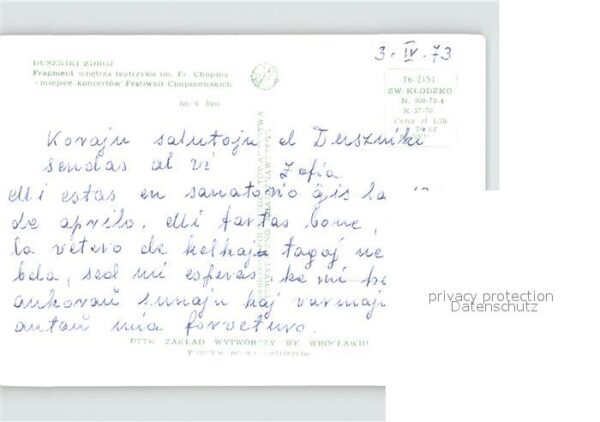 3. IV. 73
DUSZNIKI ZDRÓJ
Fragment wnętrza teatrzyku im. Fr. Chopina
- miejsce koncertów Festiwali Chopinowskich
fot.
16-7151
ZW KŁODZKO
Cena zł
Korajn salutojn el Duszniki
sendas al vi Zofia
Mi estas en sanatorio ĝis la
de aprilo. Mi fartas bone,
la vetero de kelkaj tagoj ne
bela, sed mi esperas ke mi
ankoraŭ sunajn kaj varmajn
antaŭ mia forveturo.
PTTK ZAKŁAD WYTWÓRCZY WE WROCŁAWIU
privacy protection
Datenschutz